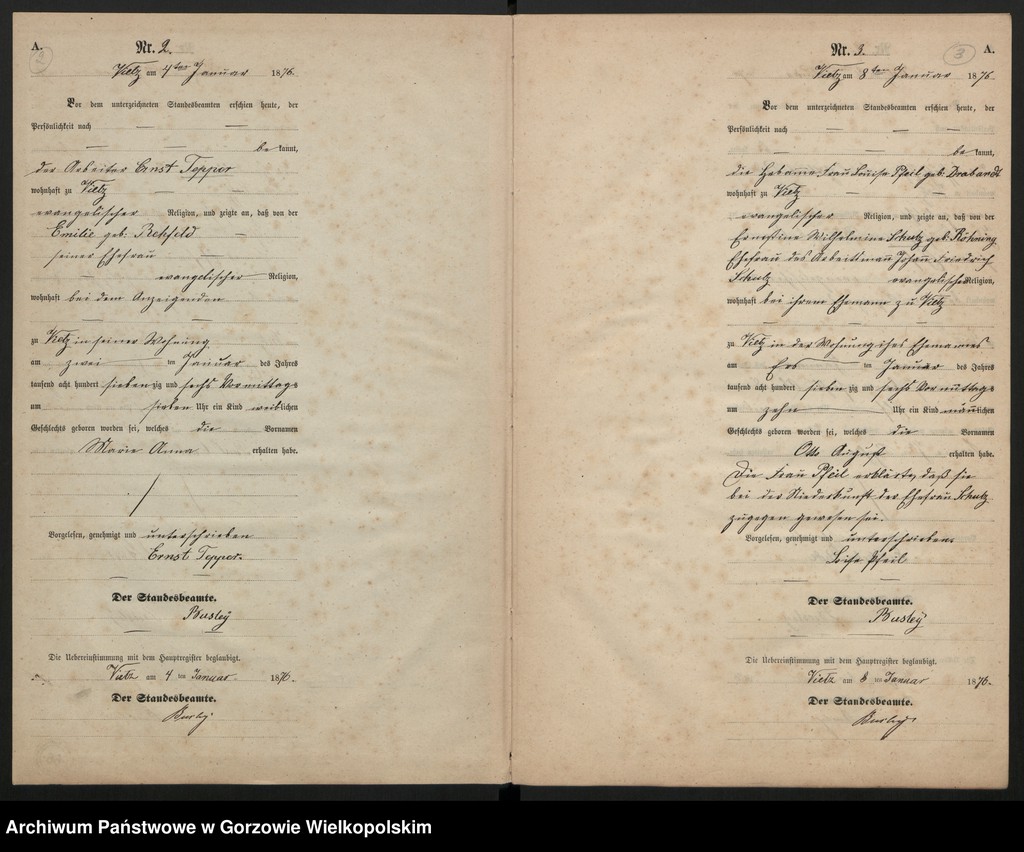 A.
Nr. 2.
Vietz am 4ten Januar 1876.
Vor dem unterzeichneten Standesbeamten erschien heute, der
Persönlichkeit nach — —
— — be kannt,
der Arbeiter Ernst Tepper
wohnhaft zu Vietz — —
evangelischer Religion, und zeigte an, daß von der
Emilie geb. Rehfeld —
seiner Ehefrau —
evangelischer Religion,
wohnhaft bei dem Anzeigenden
— — —
zu Vietz in seiner Wohnung
am zwei ten Januar des Jahres
tausend acht hundert sieben zig und sechs Vormittags
um sieben Uhr ein Kind weiblichen
Geschlechts geboren worden sei, welches die Vornamen
Marie Anna erhalten habe.
Vorgelesen, genehmigt und unterschrieben
Ernst Tepper.
— —
Der Standesbeamte.
Busley
— —
Die Uebereinstimmung mit dem Hauptregister beglaubigt.
Vietz am 4 ten Januar 1876.
Der Standesbeamte.
Busley
Nr. 3. 3 A.
Vietz am 8ten Januar 1876.
Vor dem unterzeichneten Standesbeamten erschien heute, der
Persönlichkeit nach — — —
— — be kannt,
die Hebame, Frau Louise Pfeil geb. Drabandt
wohnhaft zu Vietz — —
evangelischer Religion, und zeigte an, daß von der
Ernestine Wilhelmine Schulz geb. Röhning
Ehefrau des Arbeitsmann Johann Friedrich
Schulz evangelischer Religion,
wohnhaft bei ihrem Ehemann zu Vietz
— — —
zu Vietz in der Wohnung ihres Ehemannes
am ten Januar des Jahres
tausend acht hundert sieben zig und sechs Vormittags
um zehn Uhr ein Kind männlichen
Geschlechts geboren worden sei, welches die Vornamen
Otto August erhalten habe.
Die Frau Pfeil erklärte, daß sie
bei der Niederkunft der Ehefrau Schulz
zugegen gewesen sei.
Vorgelesen, genehmigt und unterschrieben.
Loise Pfeil
— —
Der Standesbeamte.
Busley
— —
Die Uebereinstimmung mit dem Hauptregister beglaubigt.
Vietz am 8 ten Januar 1876.
Der Standesbeamte.
Busley
Archiwum Państwowe w Gorzowie Wielkopolskim